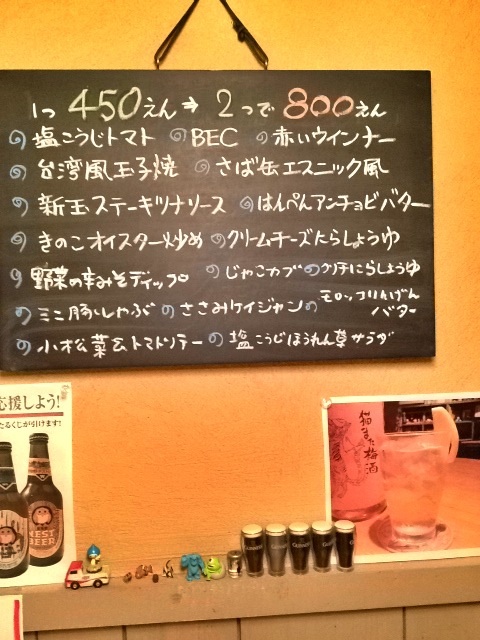 1つ 450えん→ 2つで 800えん
塩こうじトマト BEC 赤いウインナー
台湾風玉子焼 さば缶エスニック風
新玉ステーキツナソース はんぺんアンチョビバター
きのこオイスター炒め クリームチーズたらしょうゆ
野菜の辛みそディップ じゃこカブ クリチにらしょうゆ
ミニ豚しゃぶ ささみケイジャン モロッコいんげんバター
小松菜&トマトソテー 塩こうじほうれん草サラダ
応援しよう!
たるくじが引けます!
NEST
BEER
猫また梅酒